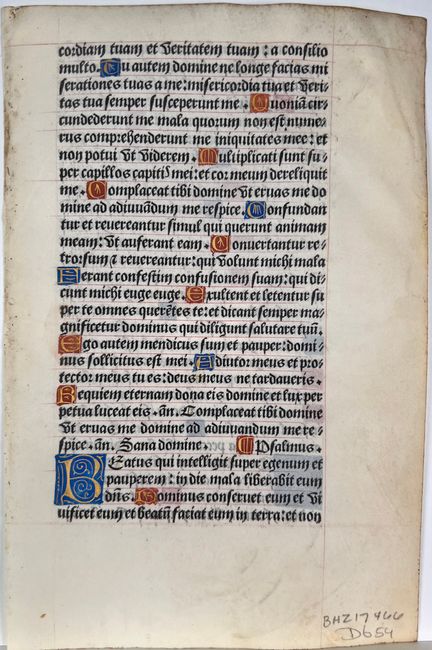 cordiam tuam et veritatem tuam : a consilio
multo. Tu autem domine ne longe facias mi
serationes tuas a me: misericordia tua et veri⸗
tas tua semper susceperunt me. Quoniā cir⸗
cundederunt me mala quorum non est nume⸗
rus comprehenderunt me iniquitates mee: et
non potui vt viderem. Multiplicati sunt su⸗
per capillos capitis mei: et cor meum dereliquit
me. Complaceat tibi domine vt eruas me do
mine ad adiuuādum me respice. Confundan
tur et reuereantur simul qui querunt animam
meam: vt auferant eam. Conuertantur re⸗
trorsum ⁊ reuereantur: qui volunt michi mala
Ferant confestim confusionem suam: qui di⸗
cunt michi euge euge. Exultent et letentur su
per te omnes querētes te: et dicant semper ma⸗
gnificetur dominus qui diligunt salutare tuū.
Ego autem mendicus sum et pauper: domi⸗
nus sollicitus est mei. Adiutor meus et pro⸗
tector meus tu es: deus meus ne tardaueris.
Requiem eternam dona eis domine et lux per
petua luceat eis. añ. Complaceat tibi domine
vt eruas me domine ad adiuuandum me re⸗
spice. añ. Sana domine. Psalmus.
BEatus qui intelligit super egenum et
pauperem: in die mala liberabit eum
dñs. Dominus conseruet eum et vi
uificet eum et beatū faciat eum in terra: et non
BHZ17466
Db54